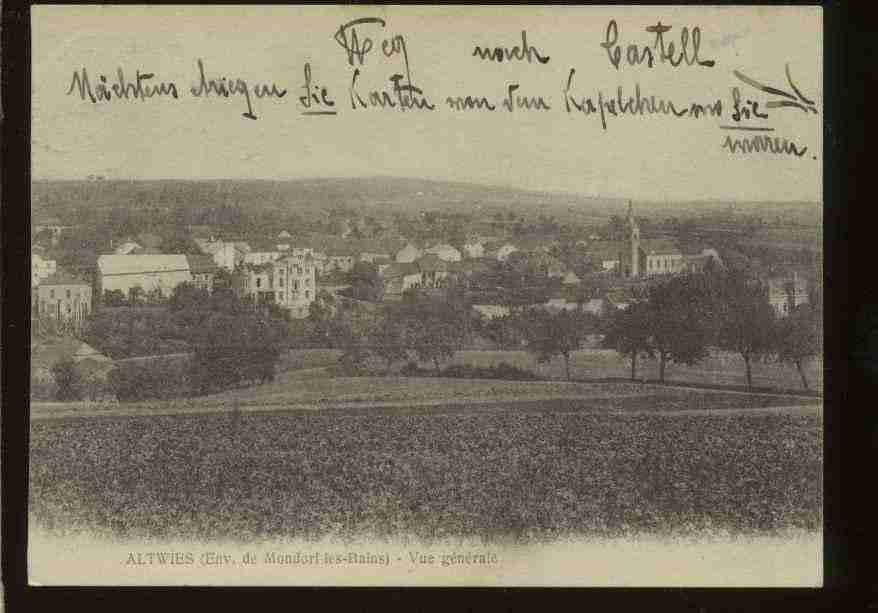 Weg nach Castell
Nächstens kriegen Sie Karten von dem Kapelchen wo Sie
waren.
ALTWIES (Env. de Mondorf-les-Bains) - Vue générale